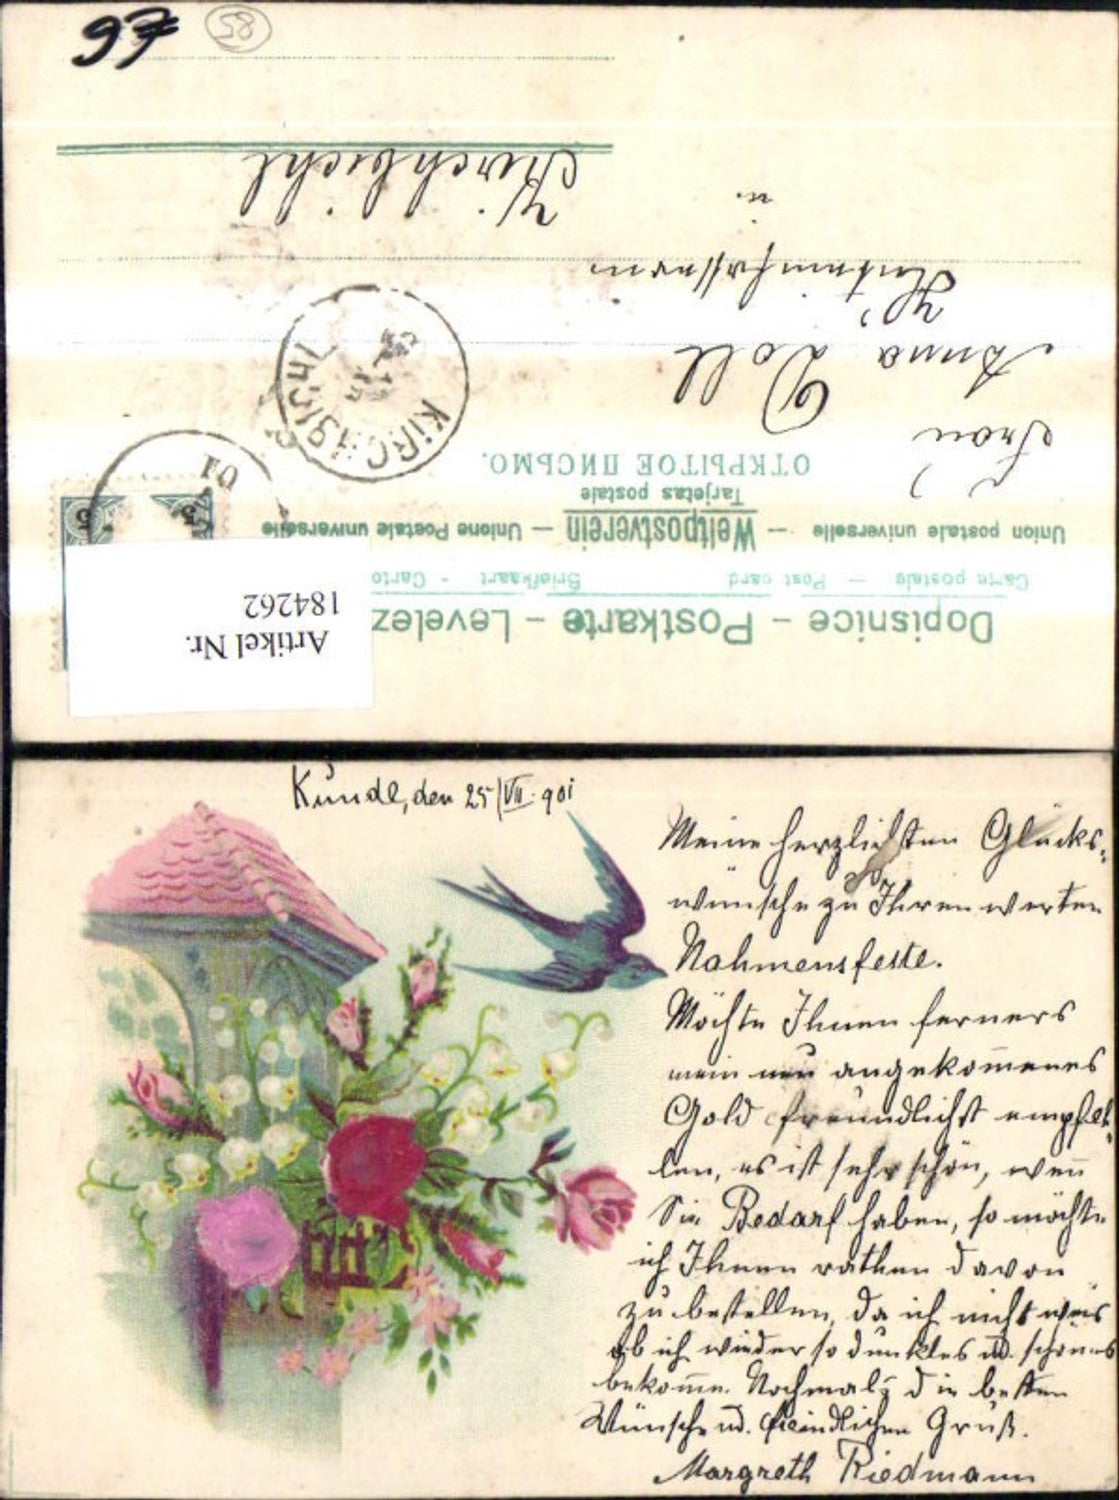 Dopisnice – Postkarte – Levelez
Carte postale – Post card Briefkaart - Carto
Union postale universelle – Weltpostverein – Unione Postale universelle
Tarjetas postale
ОТКРЫТОЕ ПИСЬМО.
Artikel Nr.
184262
5 5
01
KIRCHBICHL
Frau
Anna Doll
in
Kirchbichl
97
58
Kundl, den 25/VII. 901
Meine herzlichsten Glücks-
wünsche zu Ihren werten
Nahmensfeste.
Möchte Ihnen ferners
mein neu angekom̄enes
Gold freundlichst empfeh-
len, es ist sehr schön, wen̄
Sie Bedarf haben, so möchte
ich Ihnen rathen davon
zu bestellen, da ich nicht weis
ob ich wieder so dunkles ud. schönes
bekom̄e. Nochmals die besten
Wünsche ud. freundlichen Gruß.
Margreth Riedmann